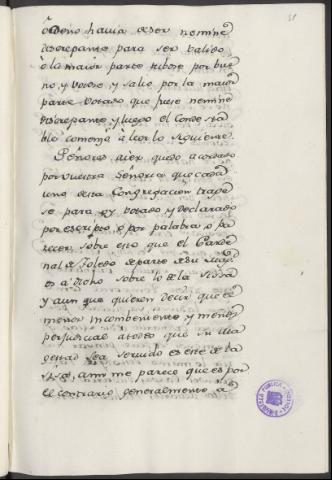 o Sono havia de ser nemine
discrepante para ser valido
o la maior parte tubose por bue
no, y votose, y salio por la maior
parte votado que fuese nemine
discrepante, y luego el Condesta
ble comenzó à leer lo siguiente.
Señores ayer quedo acordado
por vuestra Señoria que cada
uno desta Congregacion traye
se para oy votado y declarado
por escripto, o por palabra o pa
recer, sobre esto que el Carde
nal de Toledo de parte de su Mag.d
es a dicho sobre lo de la Sisa
y aun que quieren decir que es
menos incombeniente y menos
perjudicial a todos que su Ma
gestad sea servido es este de la
sisa, a mi me parece que es por
el contrario generalmente à